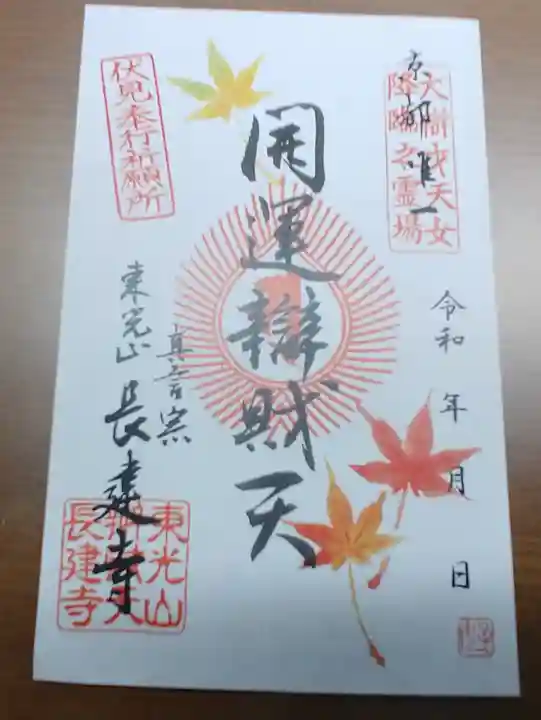 京都唯一
大樹或天女
降臨之霊場
令和 年 月 日
開運辯財天
伏見奉行祈願所
真言宗
東光山 長建寺
東光山
辯財天
長建寺